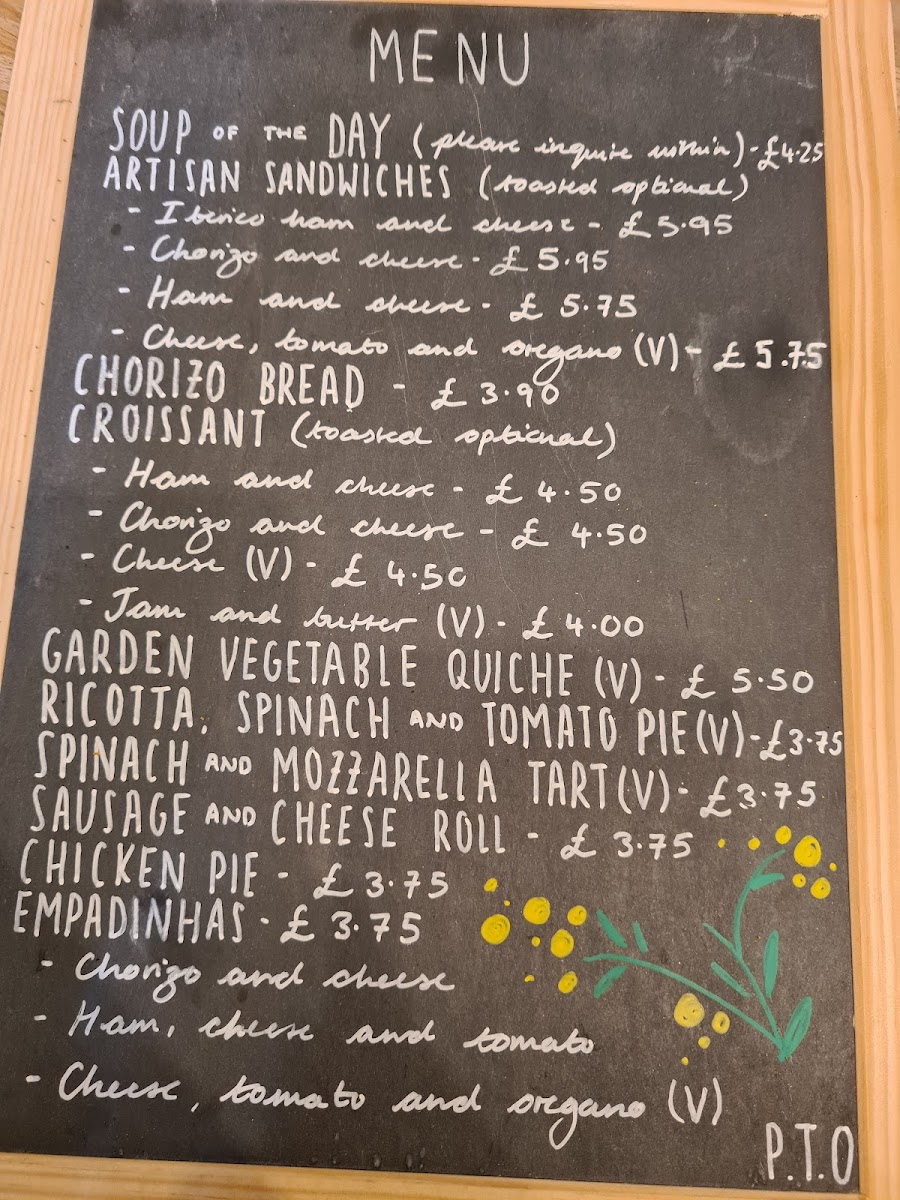 MENU
SOUP OF THE DAY (please inquire within) - £4.25
ARTISAN SANDWICHES (toasted optional)
- Iberico ham and cheese - £5.95
- Chorizo and cheese - £5.95
- Ham and cheese - £5.75
- Cheese, tomato and oregano (V) - £5.75
CHORIZO BREAD - £3.90
CROISSANT (toasted optional)
- Ham and cheese - £4.50
- Chorizo and cheese - £4.50
- Cheese (V) - £4.50
- Jam and butter (V) - £4.00
GARDEN VEGETABLE QUICHE (V) - £5.50
RICOTTA, SPINACH AND TOMATO PIE (V) - £3.75
SPINACH AND MOZZARELLA TART (V) - £3.75
SAUSAGE AND CHEESE ROLL - £3.75
CHICKEN PIE - £3.75
EMPADINHAS - £3.75
- Chorizo and cheese
- Ham, cheese and tomato
- Cheese, tomato and oregano (V)
P.T.O